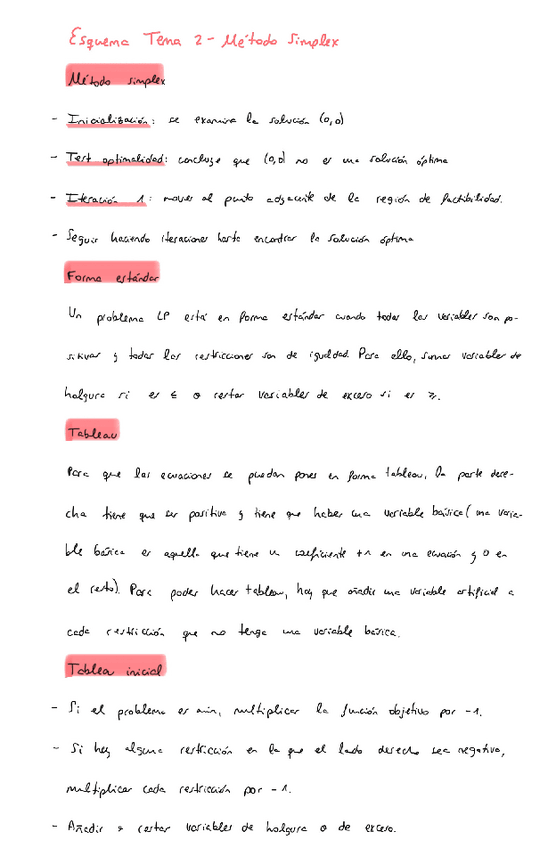 Esquema Tema 2 - Método Simplex
Método simplex
- Inicialización: se examina la solución (0,0)
- Test optimalidad: concluye que (0,0) no es una solución óptima
- Iteración 1: mover al punto adyacente de la región de factibilidad.
- Seguir haciendo iteraciones hasta encontrar la solución óptima
Forma estándar
Un problema LP está en forma estándar cuando todas las variables son po-
sitivas y todas las restricciones son de igualdad. Para ello, sumar variables de
holgura si es ≤ o restar variables de exceso si es ≥.
Tableau
Para que las ecuaciones se puedan poner en forma tableau, la parte dere-
cha tiene que ser positiva y tiene que haber una variable básica (una varia-
ble básica es aquella que tiene un coeficiente +1 en una ecuación y 0 en
el resto). Para poder hacer tableau, hay que añadir una variable artificial a
cada restricción que no tenga una variable básica.
Tableau inicial
- Si el problema es min, multiplicar la función objetivo por -1.
- Si hay alguna restricción en la que el lado derecho sea negativo,
multiplicar cada restricción por -1.
- Añadir restar variables de holgura o de exceso.